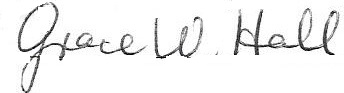 Grace W. Hall